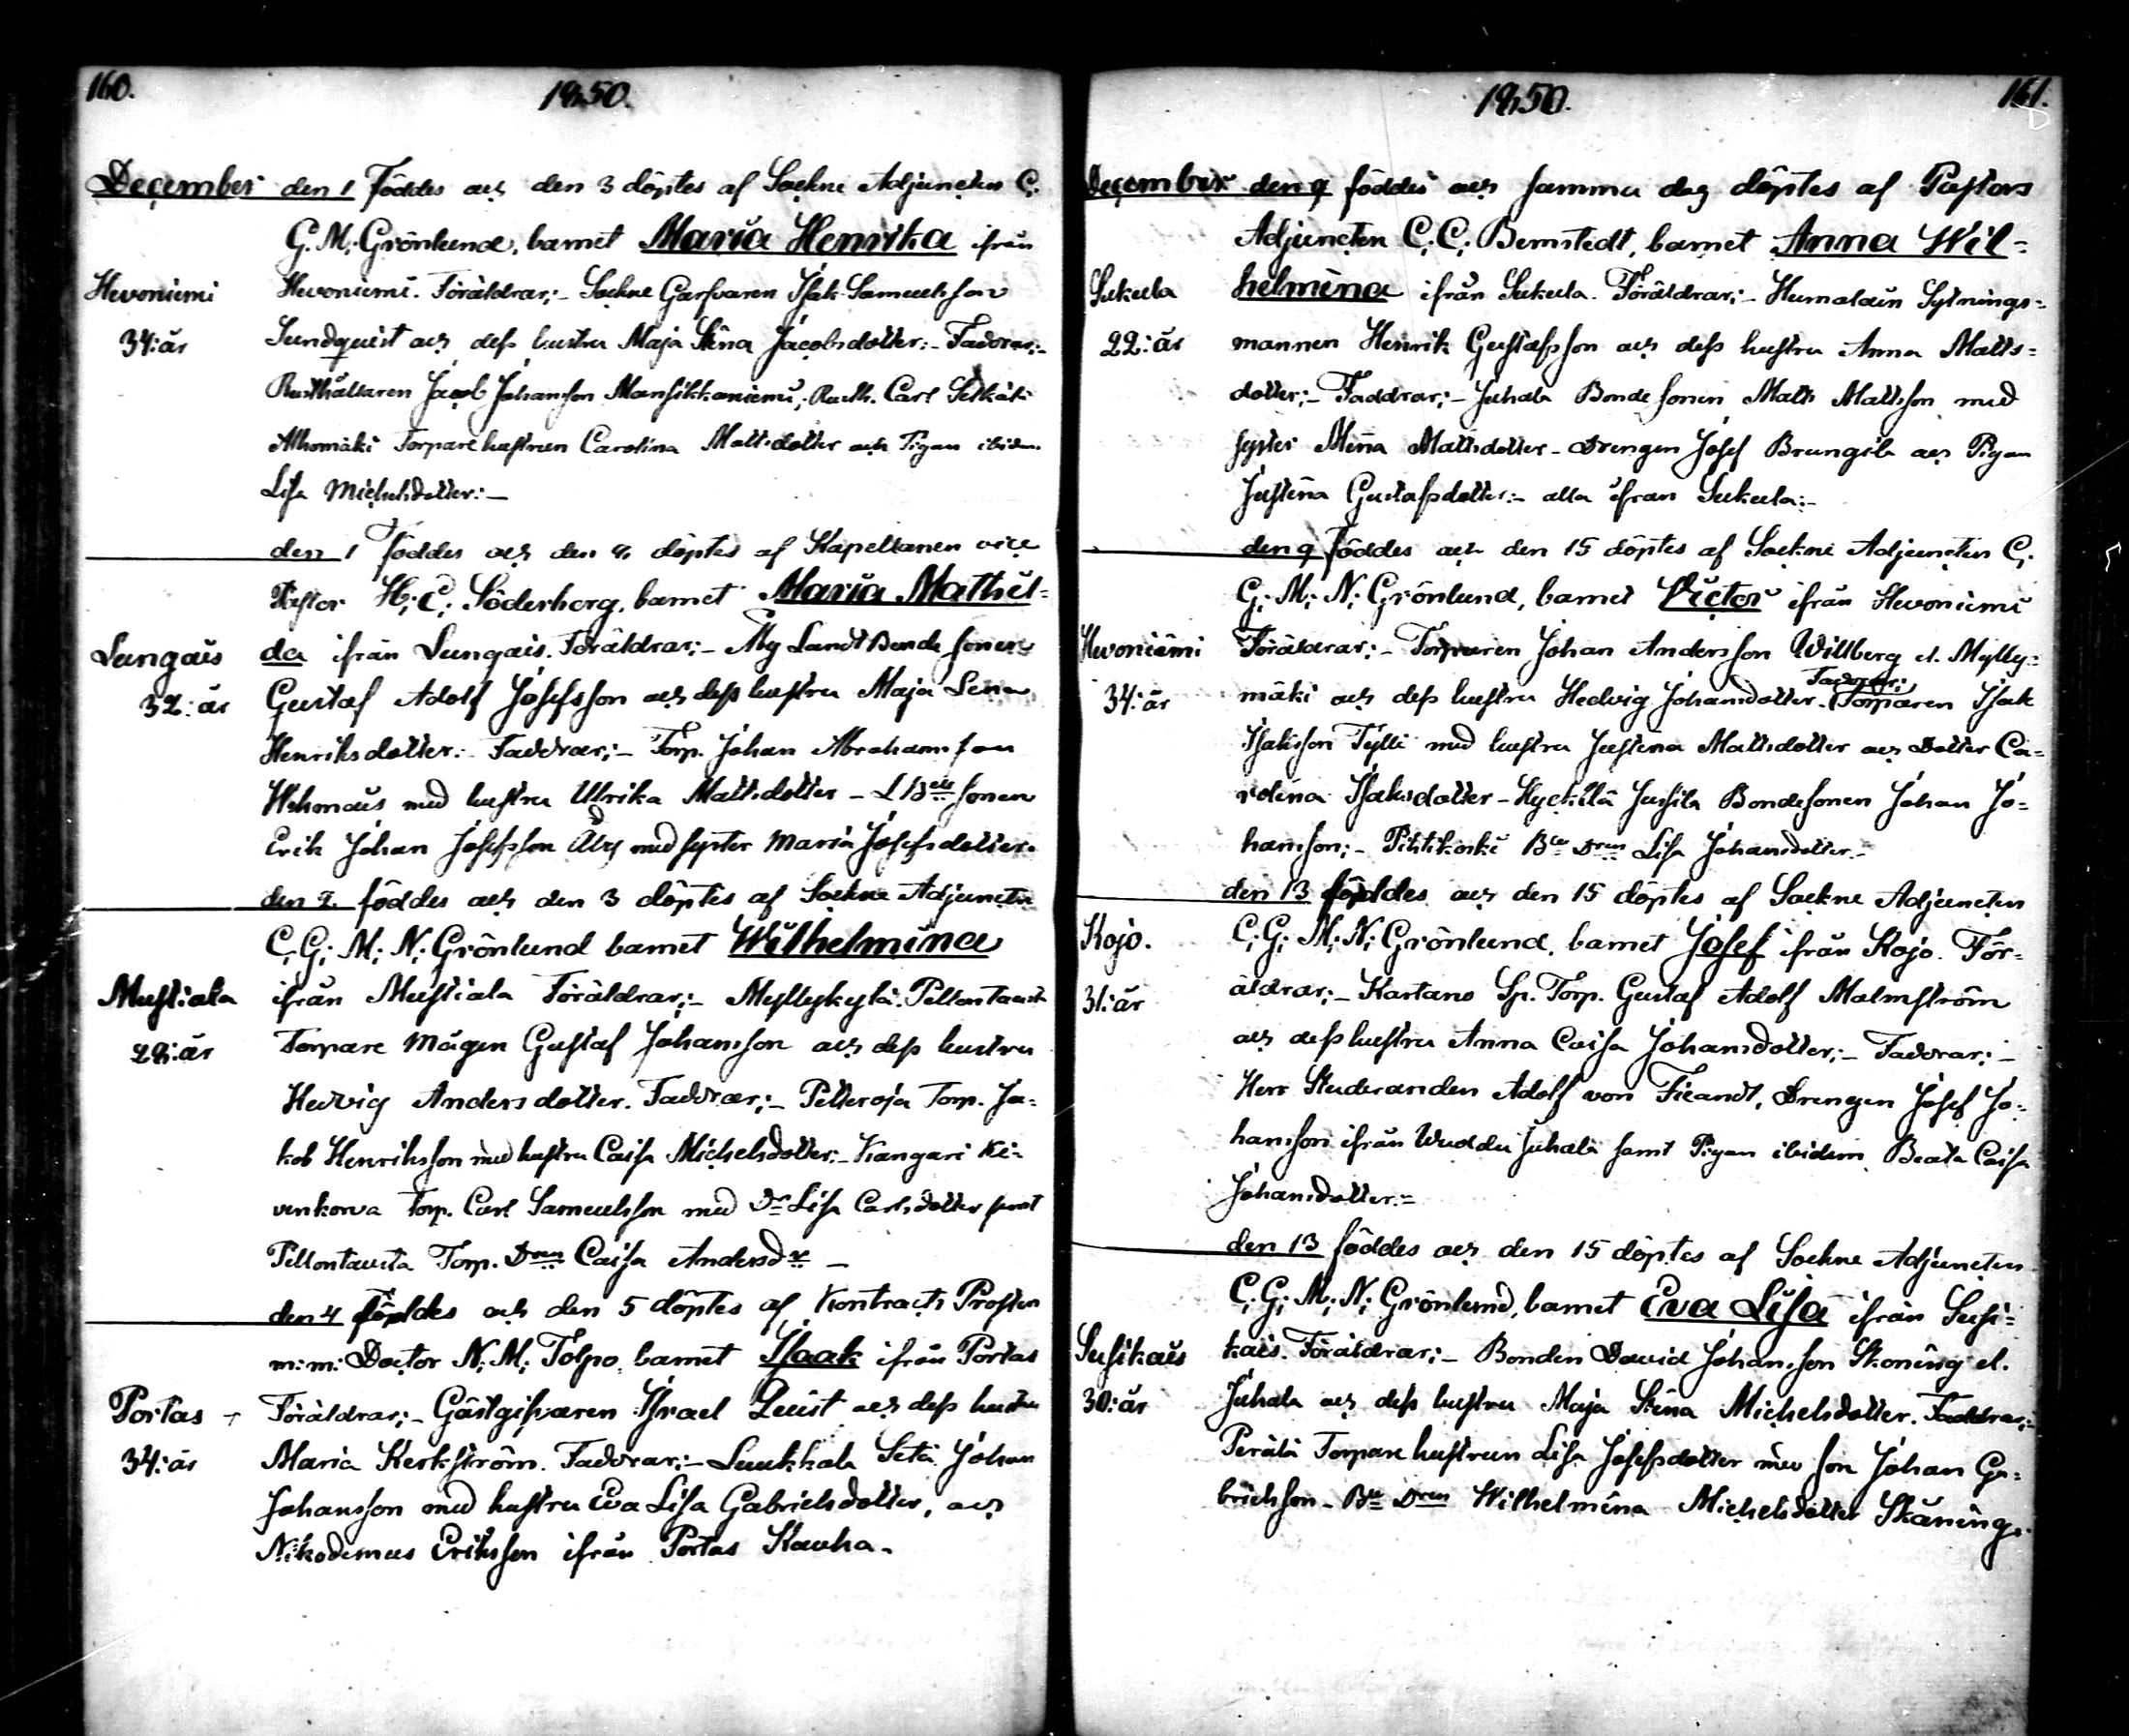 160.
1850.
December den 1 Föddes och den 3 döptes af Sockne Adjuncten C.
G. M. Grönlund, barnet Maria Henrika ifrån
Hevoniemi
Hevoniemi. Föräldrar;- Sockne Garfvaren Isak Samuelsson
34: år
Sundquist och dess hustru Maja Stina Jacobsdotter:- Faddrar;-
Rusthållaren Jacob Johansson Mansikkaniemi; Rusth. Carl
Alhomäki Torpare hustrun Carolina Mattsdotter och Pigan ibidem
Lisa Michelsdotter:-
den 1 föddes och den 8 döptes af Kapellanen vice
Pastor H; C; Söderborg, barnet Maria Mathil=
Lungais
da ifrån Lungais. Föräldrar;- Landt Bonde sonen
32: år
Gustaf Adolf Josefsson och dess hustru Maja Lena
Henriksdotter:- Faddrar;- Torp. Johan Abrahamsson
med hustru Ulrika Mattsdotter - sonen
Erik Johan Josefsson med syster Maria Josefsdotter.
den 2 föddes och den 3 döptes af Sockne Adjuncten
C; G; M; N; Grönlund barnet Wilhelmina
Mustiala
ifrån Mustiala Föräldrar;- Myllykylä Pellontausta
28: år
Torpare Mågen Gustaf Johansson och dess hustru
Hedvig Andersdotter. Faddrar;- Pelteroja Torp. Ja=
kob Henriksson med hustru Caisa Michelsdotter:- Kangari Ki=
venkorva Torp. Carl Samuelsson med Dr Lisa Carlsdotter samt
Pellontausta Torp. Dren Caisa Andersdr -
den 4 föddes och den 5 döptes af Kontracts Prosten
m: m: Doctor N; M; Tolpo, barnet Isaak ifrån Portas
Portas
Föräldrar;- Gästgifvaren Israel Quist och dess hustru
34: år
Maria Kerkström. Faddrar;- Luukkala Setä Johan
Johansson med hustru Eva Lisa Gabrielsdotter, och
Nikodemus Eriksson ifrån Portas Kauha.
1850.
161.
December den 9 föddes och samma dag döptes af Pastors
Adjuncten C; C; Bernstedt, barnet Anna Wil=
Sukula
helmina ifrån Sukula. Föräldrar;- Humalain Sytnings=
22: år
mannen Henrik Gustafsson och dess hustru Anna Matts=
dotter;- Faddrar;- Juhala Bonde sonen Matts Mattsson med
syster Mina Mattsdotter - Drengen Josef Brungila och Pigan
Justina Gustafsdotter:- alla ifrån Sukula:-
den 9 föddes och den 15 döptes af Sockne Adjuncten C;
G; M; N; Grönlund, barnet Victor ifrån Hevoniemi
Hevoniemi
Föräldrar;- Torparen Johan Andersson Willberg el. Mylly=
34: år
mäki och dess hustru Hedvig Johansdotter. Faddrar; Torparen Isak
Isaksson Tylli med hustru Justina Mattsdotter och Dotter Ca=
rolina Isaksdotter - Kyckilä Jussila Bondesonen Johan Jo=
hansson;- Pitikoski Bde Dren Lisa Johansdotter.-
den 13 föddes och den 15 döptes af Sockne Adjuncten
Kojo.
C; G; M; N; Grönlund, barnet Josef ifrån Kojo. För=
31: år
äldrar;- Kartano Sp. Torp. Gustaf Adolf Malmström
och dess hustru Anna Caisa Johansdotter;- Faddrar;-
Herr Studeranden Adolf von Fieandt, Drengen Josef Jo=
hansson ifrån Uuddu Juhala samt Pigan ibidem Beata Caisa
Johansdotter:=
den 13 föddes och den 15 döptes af Sockne Adjuncten
C; G; M; N; Grönlund, barnet Eva Lisa ifrån Susi=
Susikais
kais. Föräldrar;- Bonden David Johansson Skoning el.
30: år
Juhala och dess hustru Maja Stina Michelsdotter. Faddrar;=
Perälä Torpare hustrun Lisa Josefsdotter med son Johan Ga=
brielsson - Bde Dren Wilhelmina Michelsdotter Skäning.